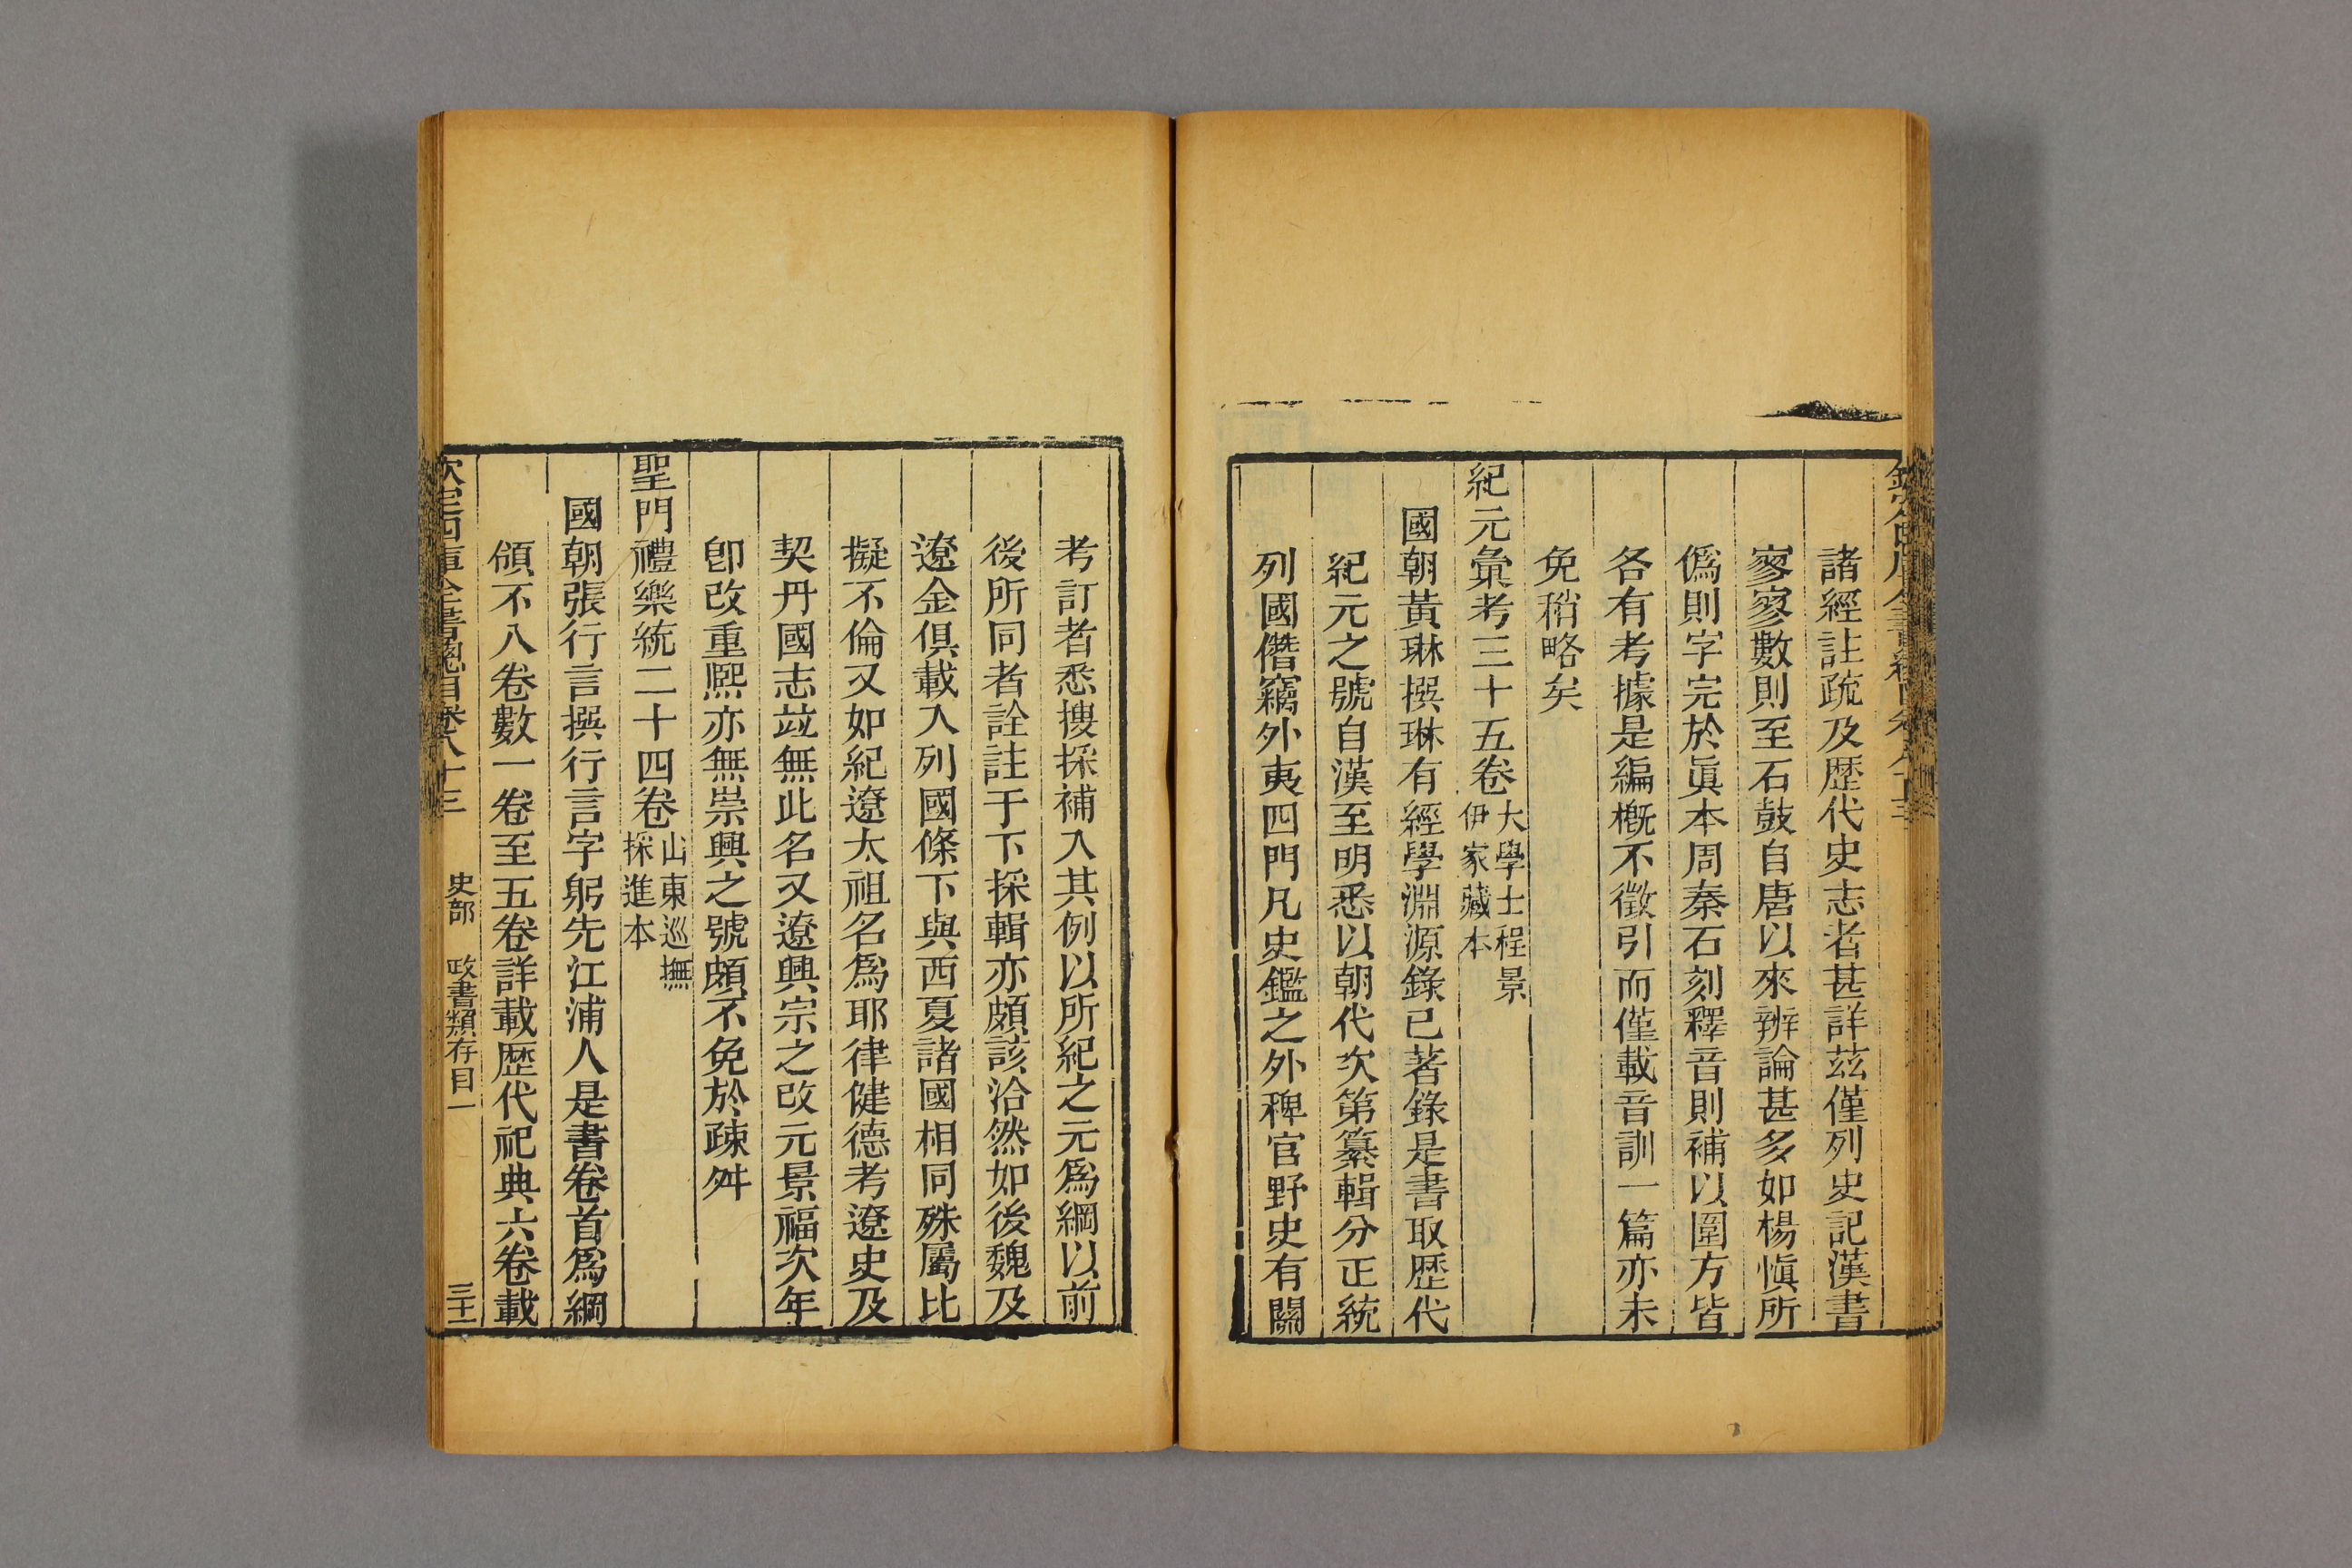 諸經註疏及歷代史志者甚詳茲僅列史記漢書
寥寥數則至石鼓自唐以來辨論甚多如楊愼所
僞則字完於眞本周秦石刻釋音則補以圍方皆
各有考據是編槪不徵引而僅載音訓一篇亦未
免稍略矣
紀元彙考三十五卷大學士程景伊家藏本
國朝黃琳撰琳有經學淵源錄已著錄是書取歷代
紀元之號自漢至明悉以朝代次第纂輯分正統
列國僭竊外夷四門凡史鑑之外稗官野史有關
考訂者悉搜採補入其例以所紀之元爲綱以前
後所同者詮註于下採輯亦頗該洽然如後魏及
遼金俱載入列國條下與西夏諸國相同殊屬比
擬不倫又如紀遼太祖名爲耶律健德考遼史及
契丹國志竝無此名又遼興宗之改元景福次年
卽改重熙亦無崇興之號頗不免於疎舛
聖門禮樂統二十四卷山東巡撫採進本
國朝張行言撰行言字躬先江浦人是書卷首爲綱
領不入卷數一卷至五卷詳載歷代祀典六卷載
欽定四庫全書總目卷八十三 史部 政書類存目一